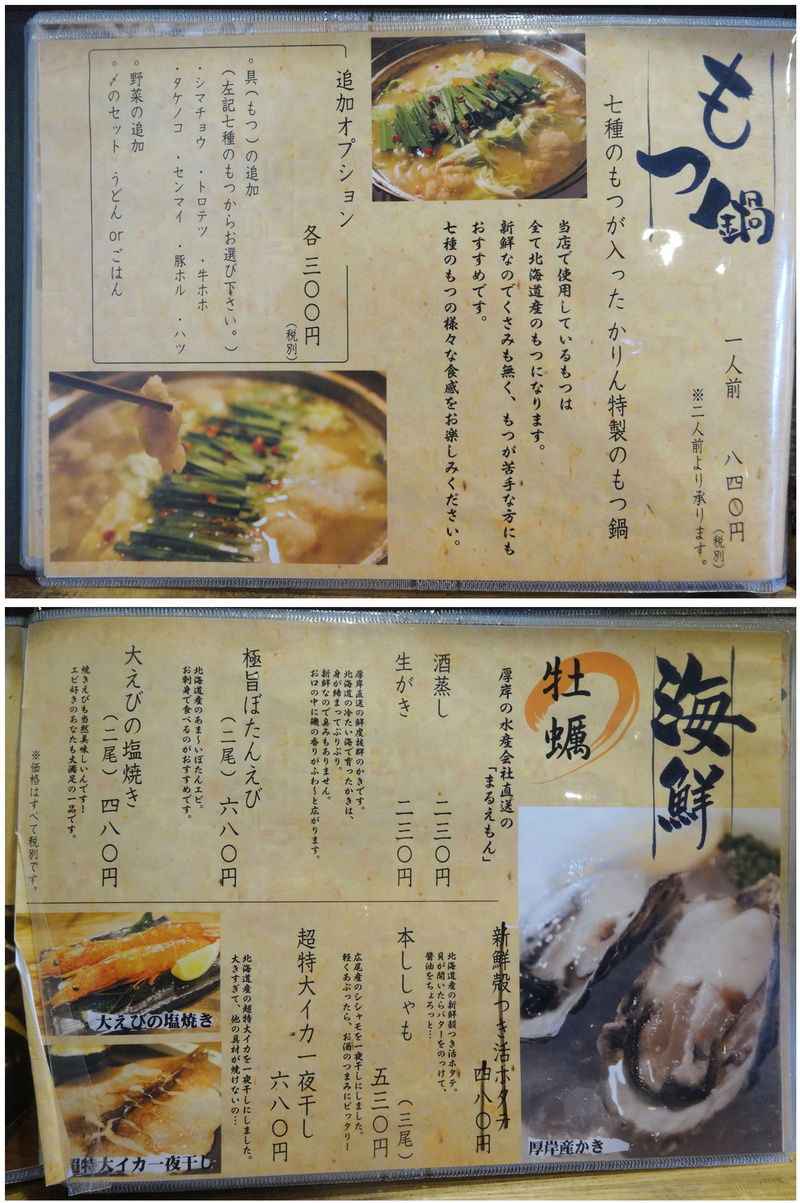 もつ鍋
一人前 八四〇円
(税別)
※二人前より承ります。
七種のもつが入った かりん特製のもつ鍋
当店で使用しているもつは
全て北海道産のもつになります。
新鮮なのでくさみも無く、もつが苦手な方にも
おすすめです。
七種のもつの様々な食感をお楽しみください。
追加オプション
各 三〇〇円
(税別)
○具(もつ)の追加
(左記七種のもつからお選び下さい。)
・シマチョウ ・トロテツ ・牛ホホ
・タケノコ ・センマイ ・豚ホル ・ハツ
○野菜の追加
○〆のセット うどん orごはん
海鮮
牡蠣
厚岸の水産会社直送の
「まるえもん」
酒蒸し 二三〇円
生がき 二三〇円
厚岸直送の鮮度抜群のかきです。
北海道の冷たい海で育ったかきは、
身が締まってぷりぷり。
新鮮なので臭みもありません。
お口の中に磯の香りがふわ〜と広がります。
極旨ぼたんえび
(二尾) 六八〇円
北海道産のあま〜いぼたんエビ。
お刺身で食べるのがおすすめです。
大えびの塩焼き
(二尾) 四八〇円
焼きえびも当然美味しいんです!
エビ好きのあなたも大満足の一品です。
※価格はすべて税別です。
新鮮殻つき活ホタテ
四八〇円
北海道産の新鮮殻つき活ホタテ。
貝が開いたらバターをのっけて、
醤油をちょろっと…
本ししゃも (三尾)
五三〇円
広尾産のシシャモを一夜干しにしました。
軽くあぶったら、お酒のつまみにピッタリ!
超特大イカ一夜干し
六八〇円
北海道産の超特大イカを一夜干しにしました。
大きすぎて、他の具材が焼けないの…
大えびの塩焼き
超特大イカ一夜干し
厚岸産かき